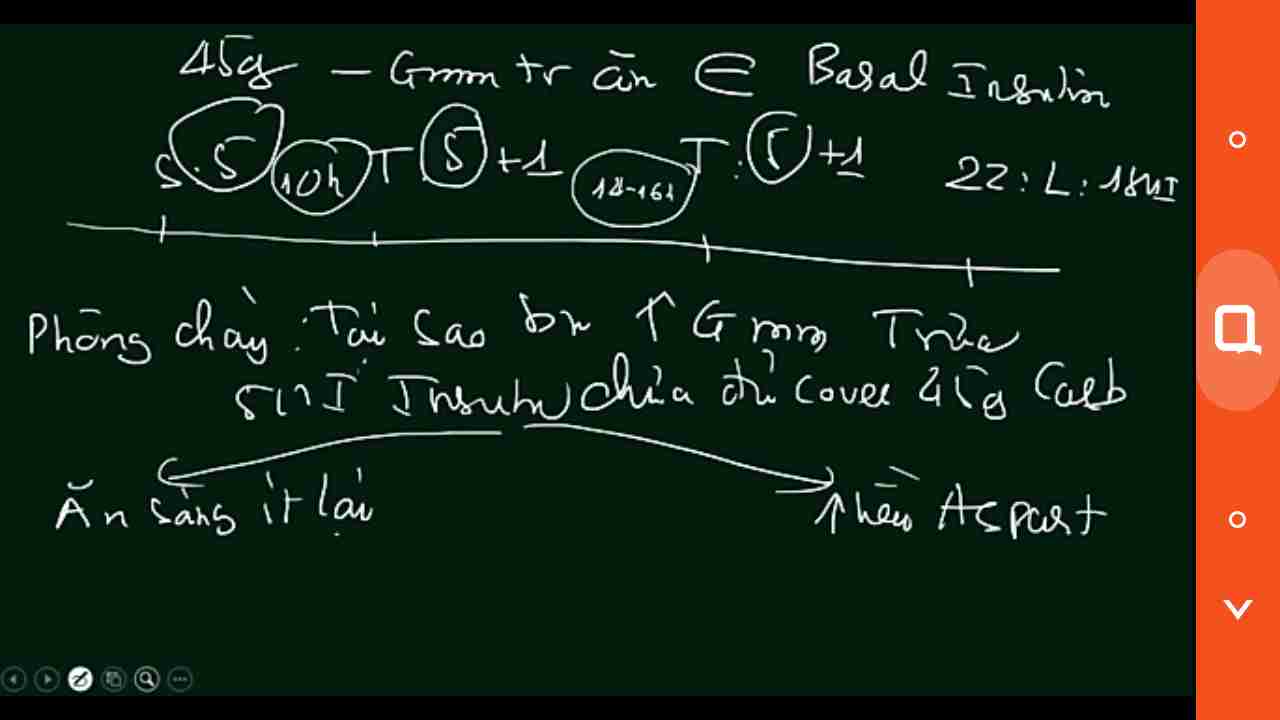 45g – Gmm tr ăn ∈ Basal Insulin
S: 5 10h T 5 +1 14-16h T: 5 +1 22: L: 18UI
Phòng chạy: Tại sao bn ↑ Gmm Trưa
5UI Insulin chưa đủ cover 45g Carb
Ăn sáng ít lại
↑ liều Aspart